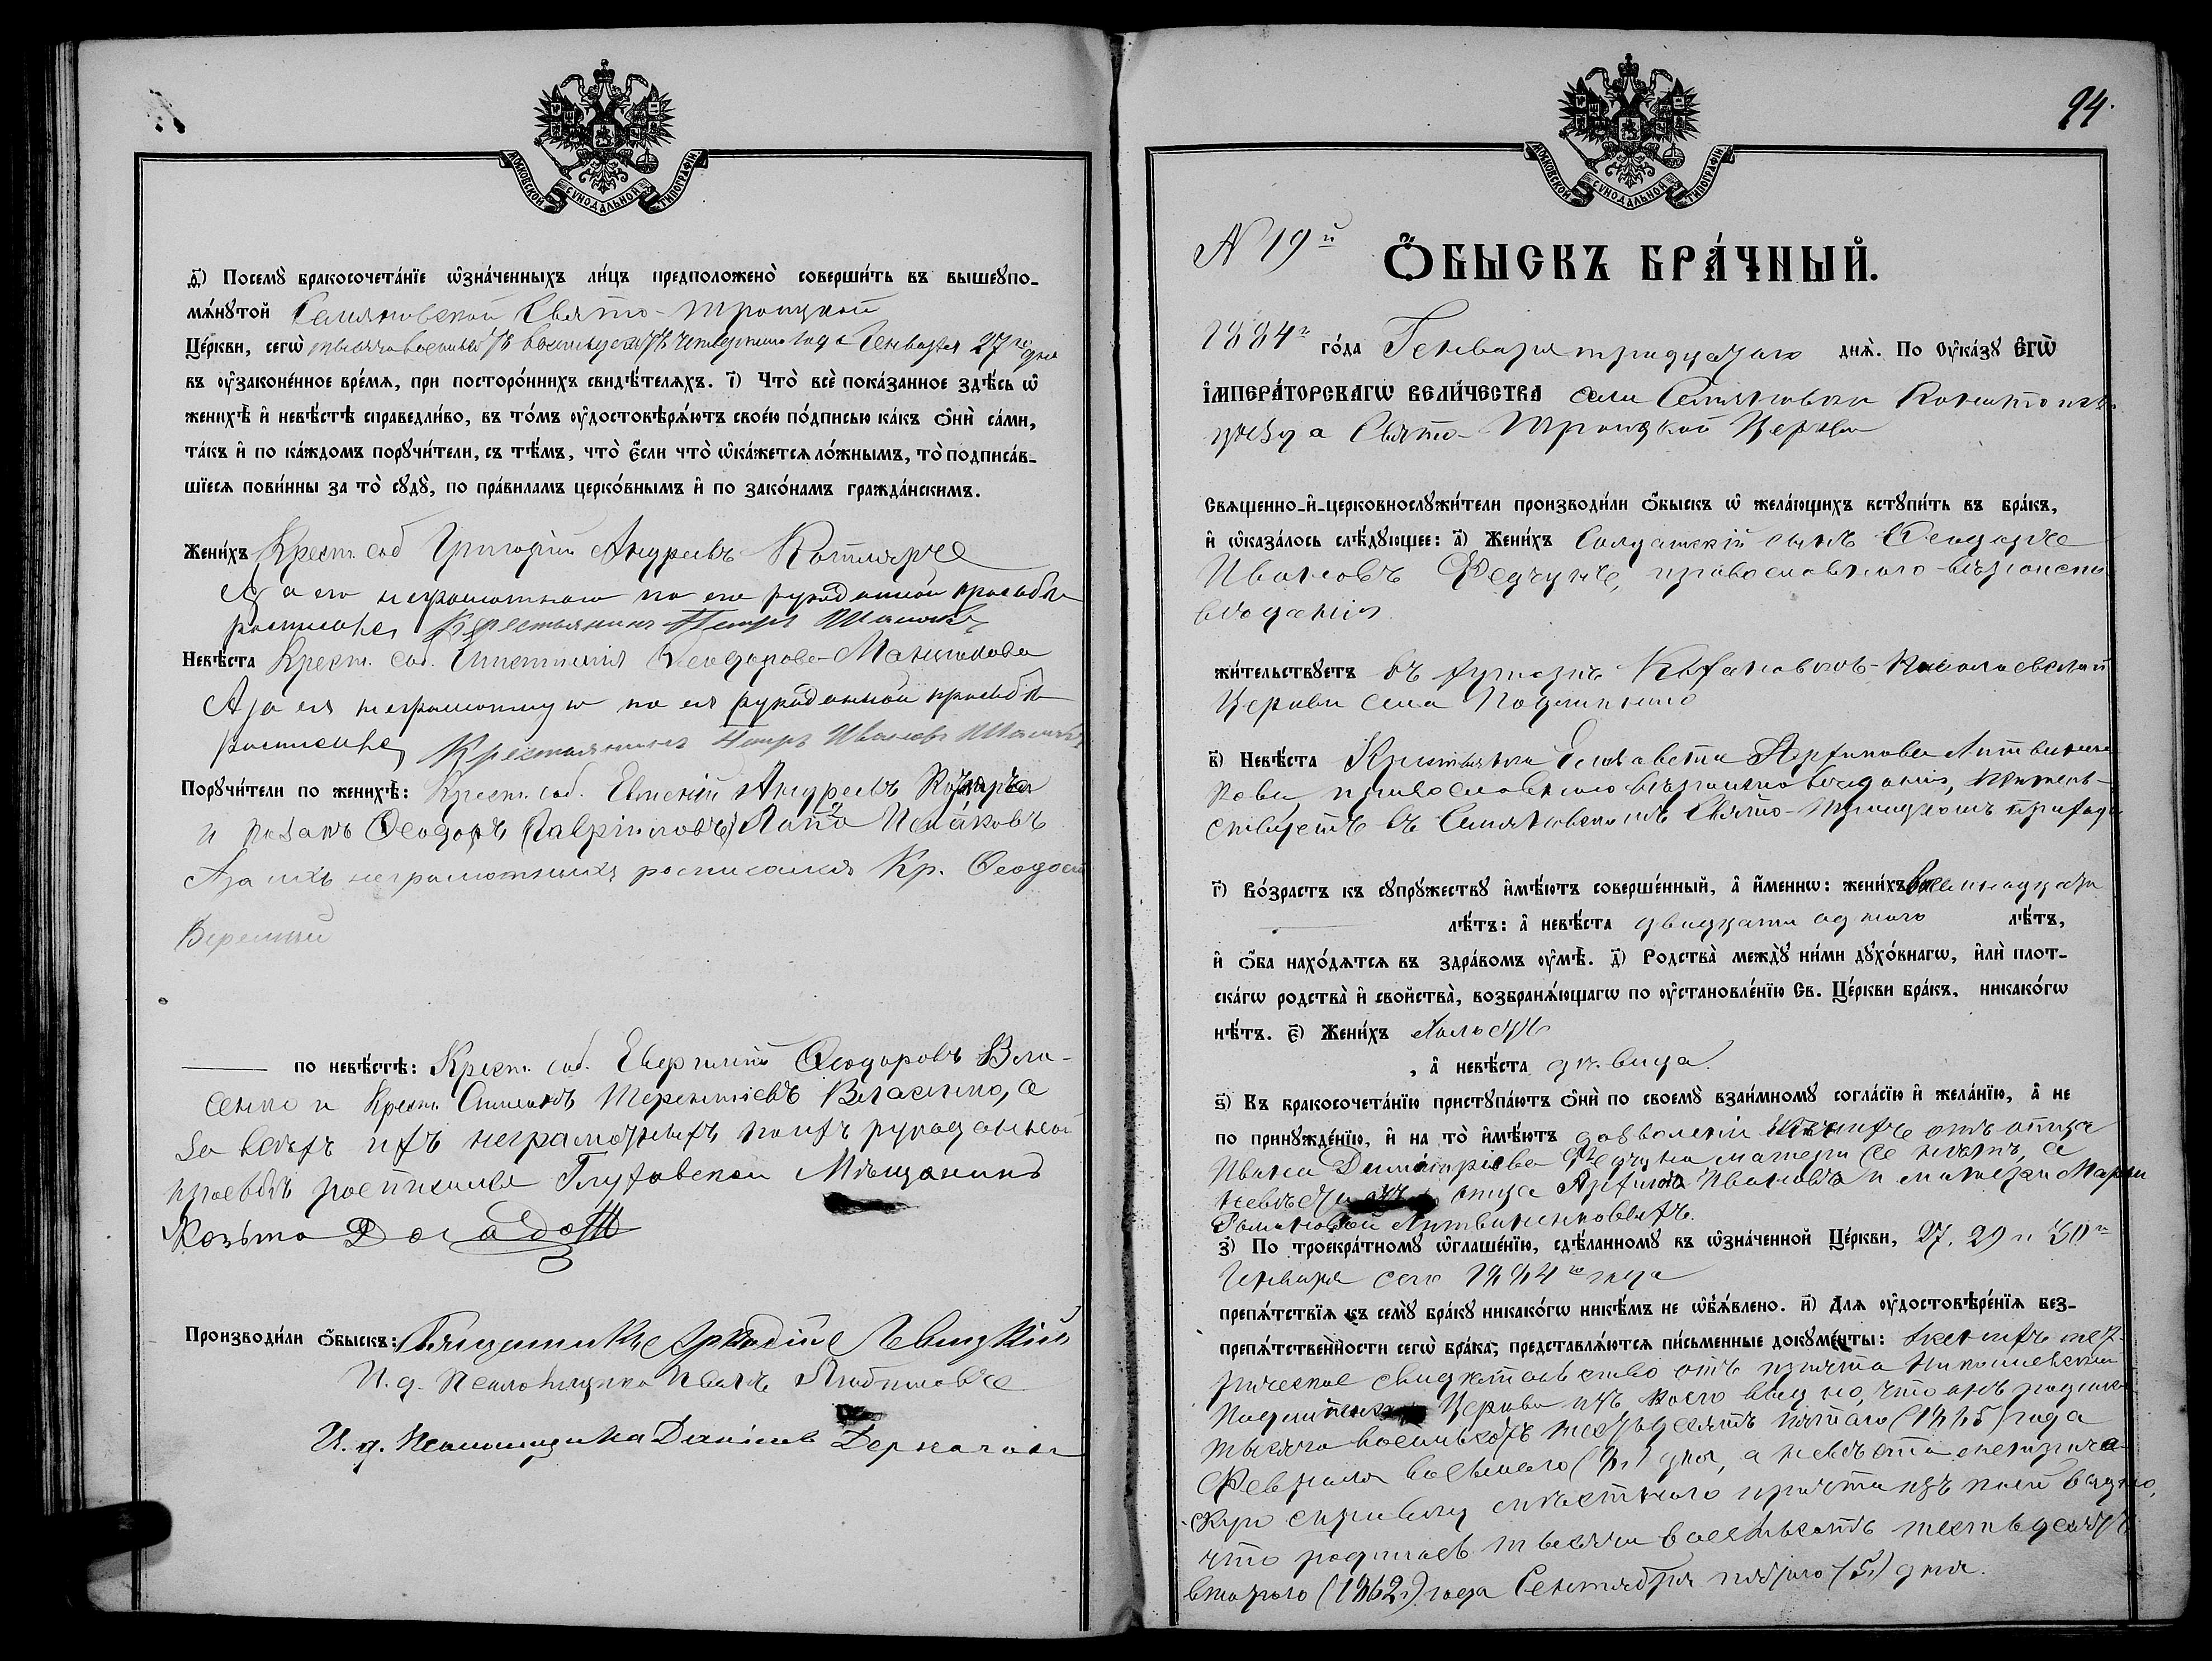 МОСКОВСКОЙ СѴНОДАЛЬНОЙ ТИПОГРАФІИ
д҃) Посемꙋ̀ бракосочета́нїе ѡ҆зна́ченныхъ ли́цъ предположено̀ соверши́ть въ вышеꙋпо-
мѧ́нꙋтой Семяновской Свято-Троицкой
Це́ркви, сегѡ̀ тысяча восемьсотъ восемьдесятъ четвертаго года Генваря 27го дня
въ ᲂу҆законе́нное вре́мѧ, при посторо́ннихъ свидѣ́телѧхъ. і҃) Что̀ всѐ пока́занное здѣ́сь ѡ҆
женихѣ̀ и҆ невѣ́стѣ справедли́во, въ то́мъ ᲂу҆достовѣрѧ́ютъ свое́ю по́дписью ка́къ ѻ҆нѝ са́ми,
та́къ и҆ по ка́ждомъ порꙋчи́тели, съ тѣ́мъ, что̀ є҆́сли что̀ ѡ҆ка́жетсѧ ло́жнымъ, то̀ подписа́в-
шїесѧ пови́нны за то̀ сꙋдꙋ̀, по пра́виламъ церко́внымъ и҆ по зако́намъ гражда́нскимъ.
Жени́хъ Крест. соб Григорій Андреевъ Котляръ
А за его неграмотнаго по его рукоданной прозьбѣ
росписался Крестьянинъ Петръ
Невѣ́ста Крест. соб. Ѳеодорова
А за ея неграмотную по ея рукоданной прозьбѣ
росписался Крестьянинъ Петръ Ивановъ
Порꙋчи́тели по женихѣ̀: Крест. соб. Евгеній Андреевъ Котляръ
и козакъ Ѳеодоръ Лапа
А за ихъ неграмотныхъ росписался Кр. Ѳеодосій
Веремій
по невѣ́стѣ: Крест. соб. Ѳеодоровъ Вла-
сенко и Крест. Симеонъ Терентіевъ Власенко, а
за всѣхъ ихъ неграмотныхъ по ихъ рукоданной
прозьбѣ росписался Глуховской Мѣщанинъ
Козьма
Производи́ли ѻ҆́быскъ: Священникъ Аркадій Левицкій
И. д. Псаломщика Иванъ
И. д. Псаломщика Даніилъ
94.
МОСКОВСКОЙ СѴНОДАЛЬНОЙ ТИПОГРАФІИ
N 19й Ѻ҆́БЫСКЪ БРА́ЧНЫЙ.
1884го го́да Генваря тридцатаго днѧ̀. По ᲂу҆ка́зꙋ Є҆гѡ̀
І҆мпера́торскагѡ вели́чества села Семяновки Конотопск.
уѣзда Свято-Троицкой Церкви
Свѧщенно-и҆-церковнослꙋжи́тели производи́ли ѻ҆́быскъ ѡ҆ жела́ющихъ встꙋпи́ть въ бра́къ,
и҆ ѡ҆каза́лось слѣ́дꙋющее: а҃) Жени́хъ Солдатскій сынъ Ѳеодоръ
Ивановъ Федчунъ, православнаго вѣроиспо-
вѣданія
жи́тельствꙋетъ въ хуторѣ Николаевской
Церкви села Подлипнаго
в҃) Невѣ́ста Крестьянка Елисавета Артимова Литвинен-
кова, православнаго вѣроисповѣданія, житель-
ствуетъ въ Семяновскомъ Свято-Троицкомъ приходѣ
г҃) Во́зрастъ къ сꙋпрꙋ́жествꙋ и҆мѣ́ютъ соверше́нный, а҆ и҆́меннѡ: жени́хъ восемнадцати
лѣ́тъ: а҆ невѣ́ста двадцати одного лѣ́тъ,
и҆ ѻ҆́ба нахо́дѧтсѧ въ здра́вомъ ᲂу҆мѣ̀. д҃) Родства̀ междꙋ̀ ни́ми дꙋхо́внагѡ, и҆лѝ плот-
ска́гѡ родства̀ и҆ свойства̀, возбранѧ́ющагѡ по ᲂу҆становле́нїю Св. Це́ркви бра́къ, никако́гѡ
нѣ́тъ. є҃) Жени́хъ холостъ
, а҆ невѣ́ста дѣвица
ѕ҃) Въ бракосочета́нїю пристꙋпа́ютъ ѻ҆нѝ по своемꙋ̀ взаи́мномꙋ согла́сїю и҆ жела́нїю, а҆ не
по принꙋжде́нїю, и҆ на то̀ и҆мѣ́ютъ дозволеніе женихъ отъ отца
Ивана Димитріева Федчуна матери же нѣтъ, а
невѣста отца Артима Иванова и матери Маріи
Романовой Литвиненковыхъ.
з҃) По троекра́тномꙋ ѡ҆глаше́нїю, сдѣ́ланномꙋ въ ѡ҆зна́ченной Це́ркви, 27, 29 и 30го
Генваря сего 1884го года
препѧ́тствїѧ къ семꙋ̀ бра́кꙋ никако́гѡ никѣ́мъ не ѡ҆б̾ѧ́влено. и҃) Длѧ ᲂу҆достовѣре́нїѧ без-
препѧ́тственности сегѡ̀ бра́ка, представлѧ́ютсѧ пи́сьменные докꙋме́нты: женихъ мет-
рическое свидѣтельство отъ причта Николаевской
Подлипенской Церкви изъ коего видно, что онъ родился
тысяча восемьсотъ шестьдесятъ пятаго (1865) года
Февраля восьмаго (8) дня, а невѣста метриче-
скую справку мѣстнаго причта изъ коей видно,
что родилась тысяча восемьсотъ шестьдесятъ
втораго (1862г) года Сентября пятаго (5) дня.